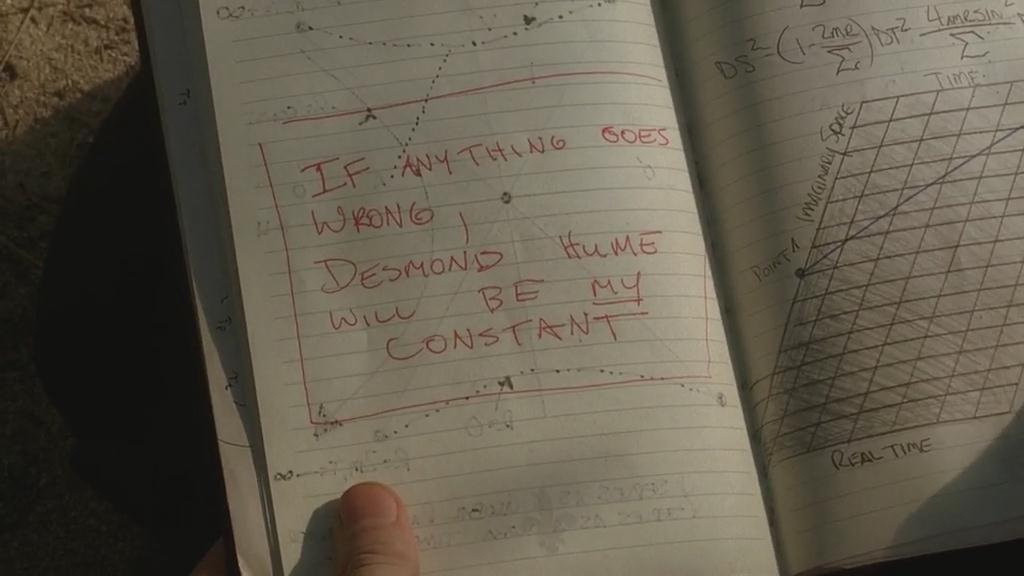 IF ANYTHING GOES
WRONG,
DESMOND HUME
WILL BE MY
CONSTANT
TIME
IMAGINARY SPACE
POINT A
REAL TIME